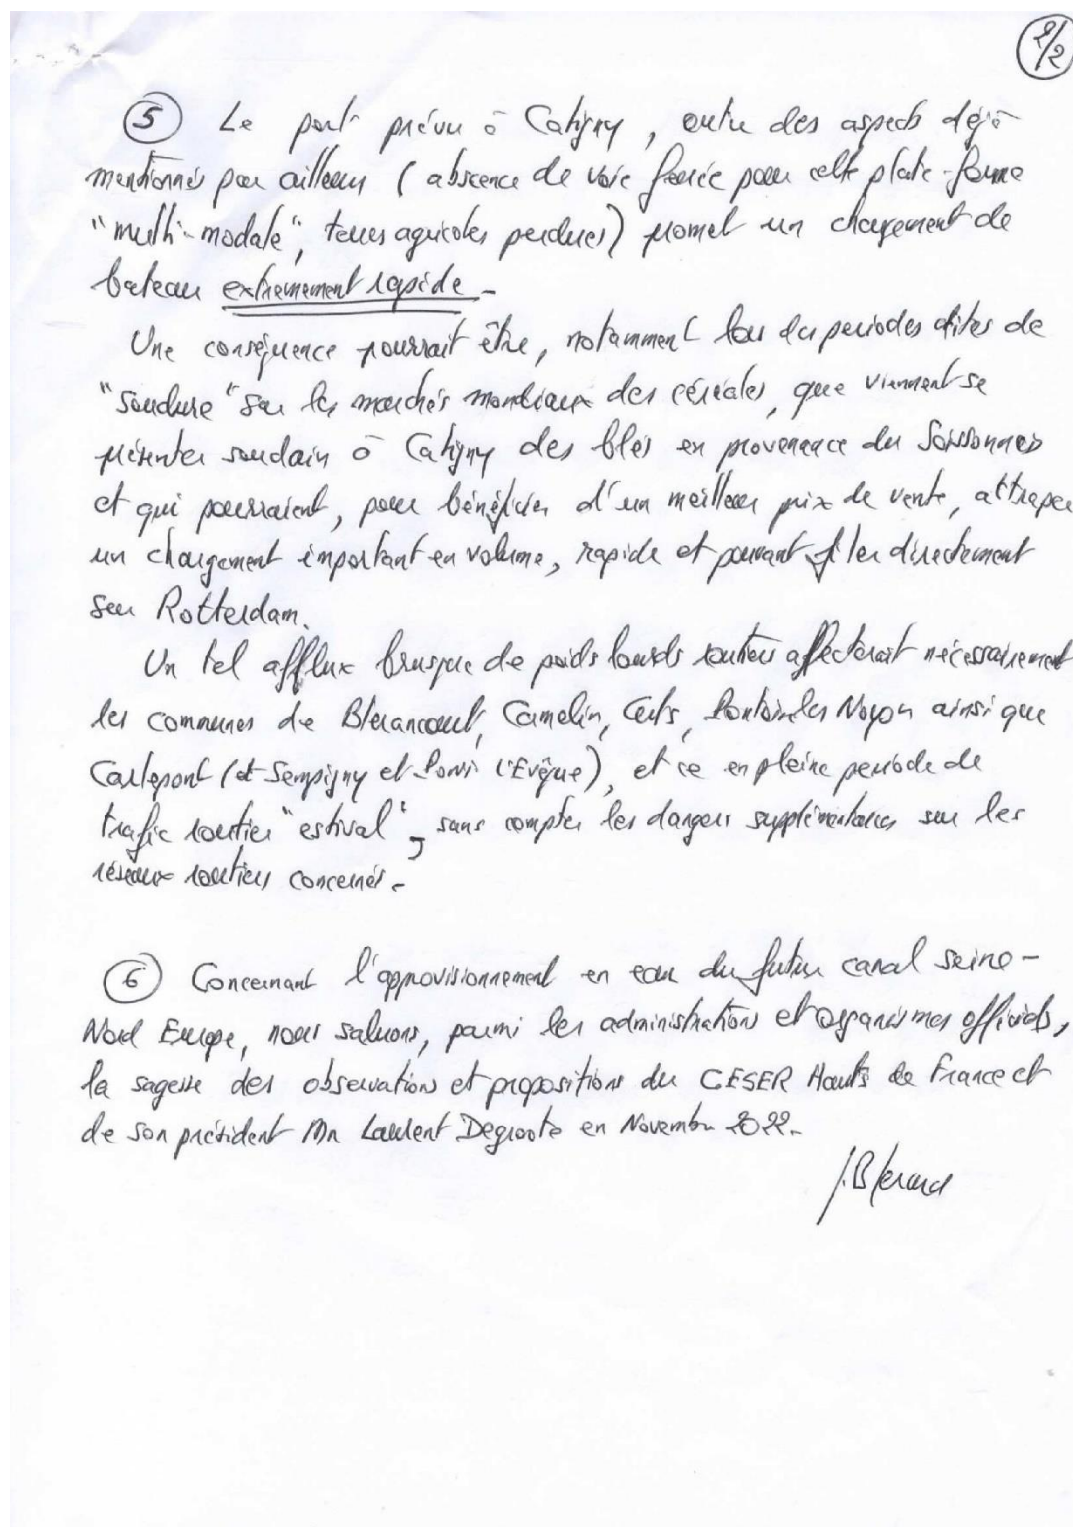 2/2
5 Le port prévu à Catigny, outre des aspects déjà
mentionnés par ailleurs (abscence de voie ferrée pour cette plate-forme
"multi-modale", terres agricoles perdues) promet un chargement de
bateau extrêmement rapide -
Une conséquence pourrait être, notamment lors des periodes dites de
"soudure" sur les marchés mondiaux des céréales, que viennent se
présenter soudain à Catigny des blés en provenance du Soissonnais
et qui pourraient, pour bénéficier d'un meilleur prix de vente, attraper
un chargement important en volume, rapide et pouvant filer directement
sur Rotterdam.
Un tel afflux brusque de poids lourds routiers affecterait nécessairement
les communes de Blérancourt, Camelin, Cuts, Pontoise les Noyon ainsi que
Carlepont (et Sempigny et Pont l'Evêque), et ce en pleine periode de
trafic routier "estival", sans compter les dangers supplémentaires sur les
réseaux routiers concernés -
6 Concernant l'approvisionnement en eau du futur canal seine-
Nord Europe, nous saluons, parmi les administrations et organismes officiels,
la sagesse des observations et propositions du CESER Hauts de France et
de son président Mr Laurent Degroote en Novembre 2022 -